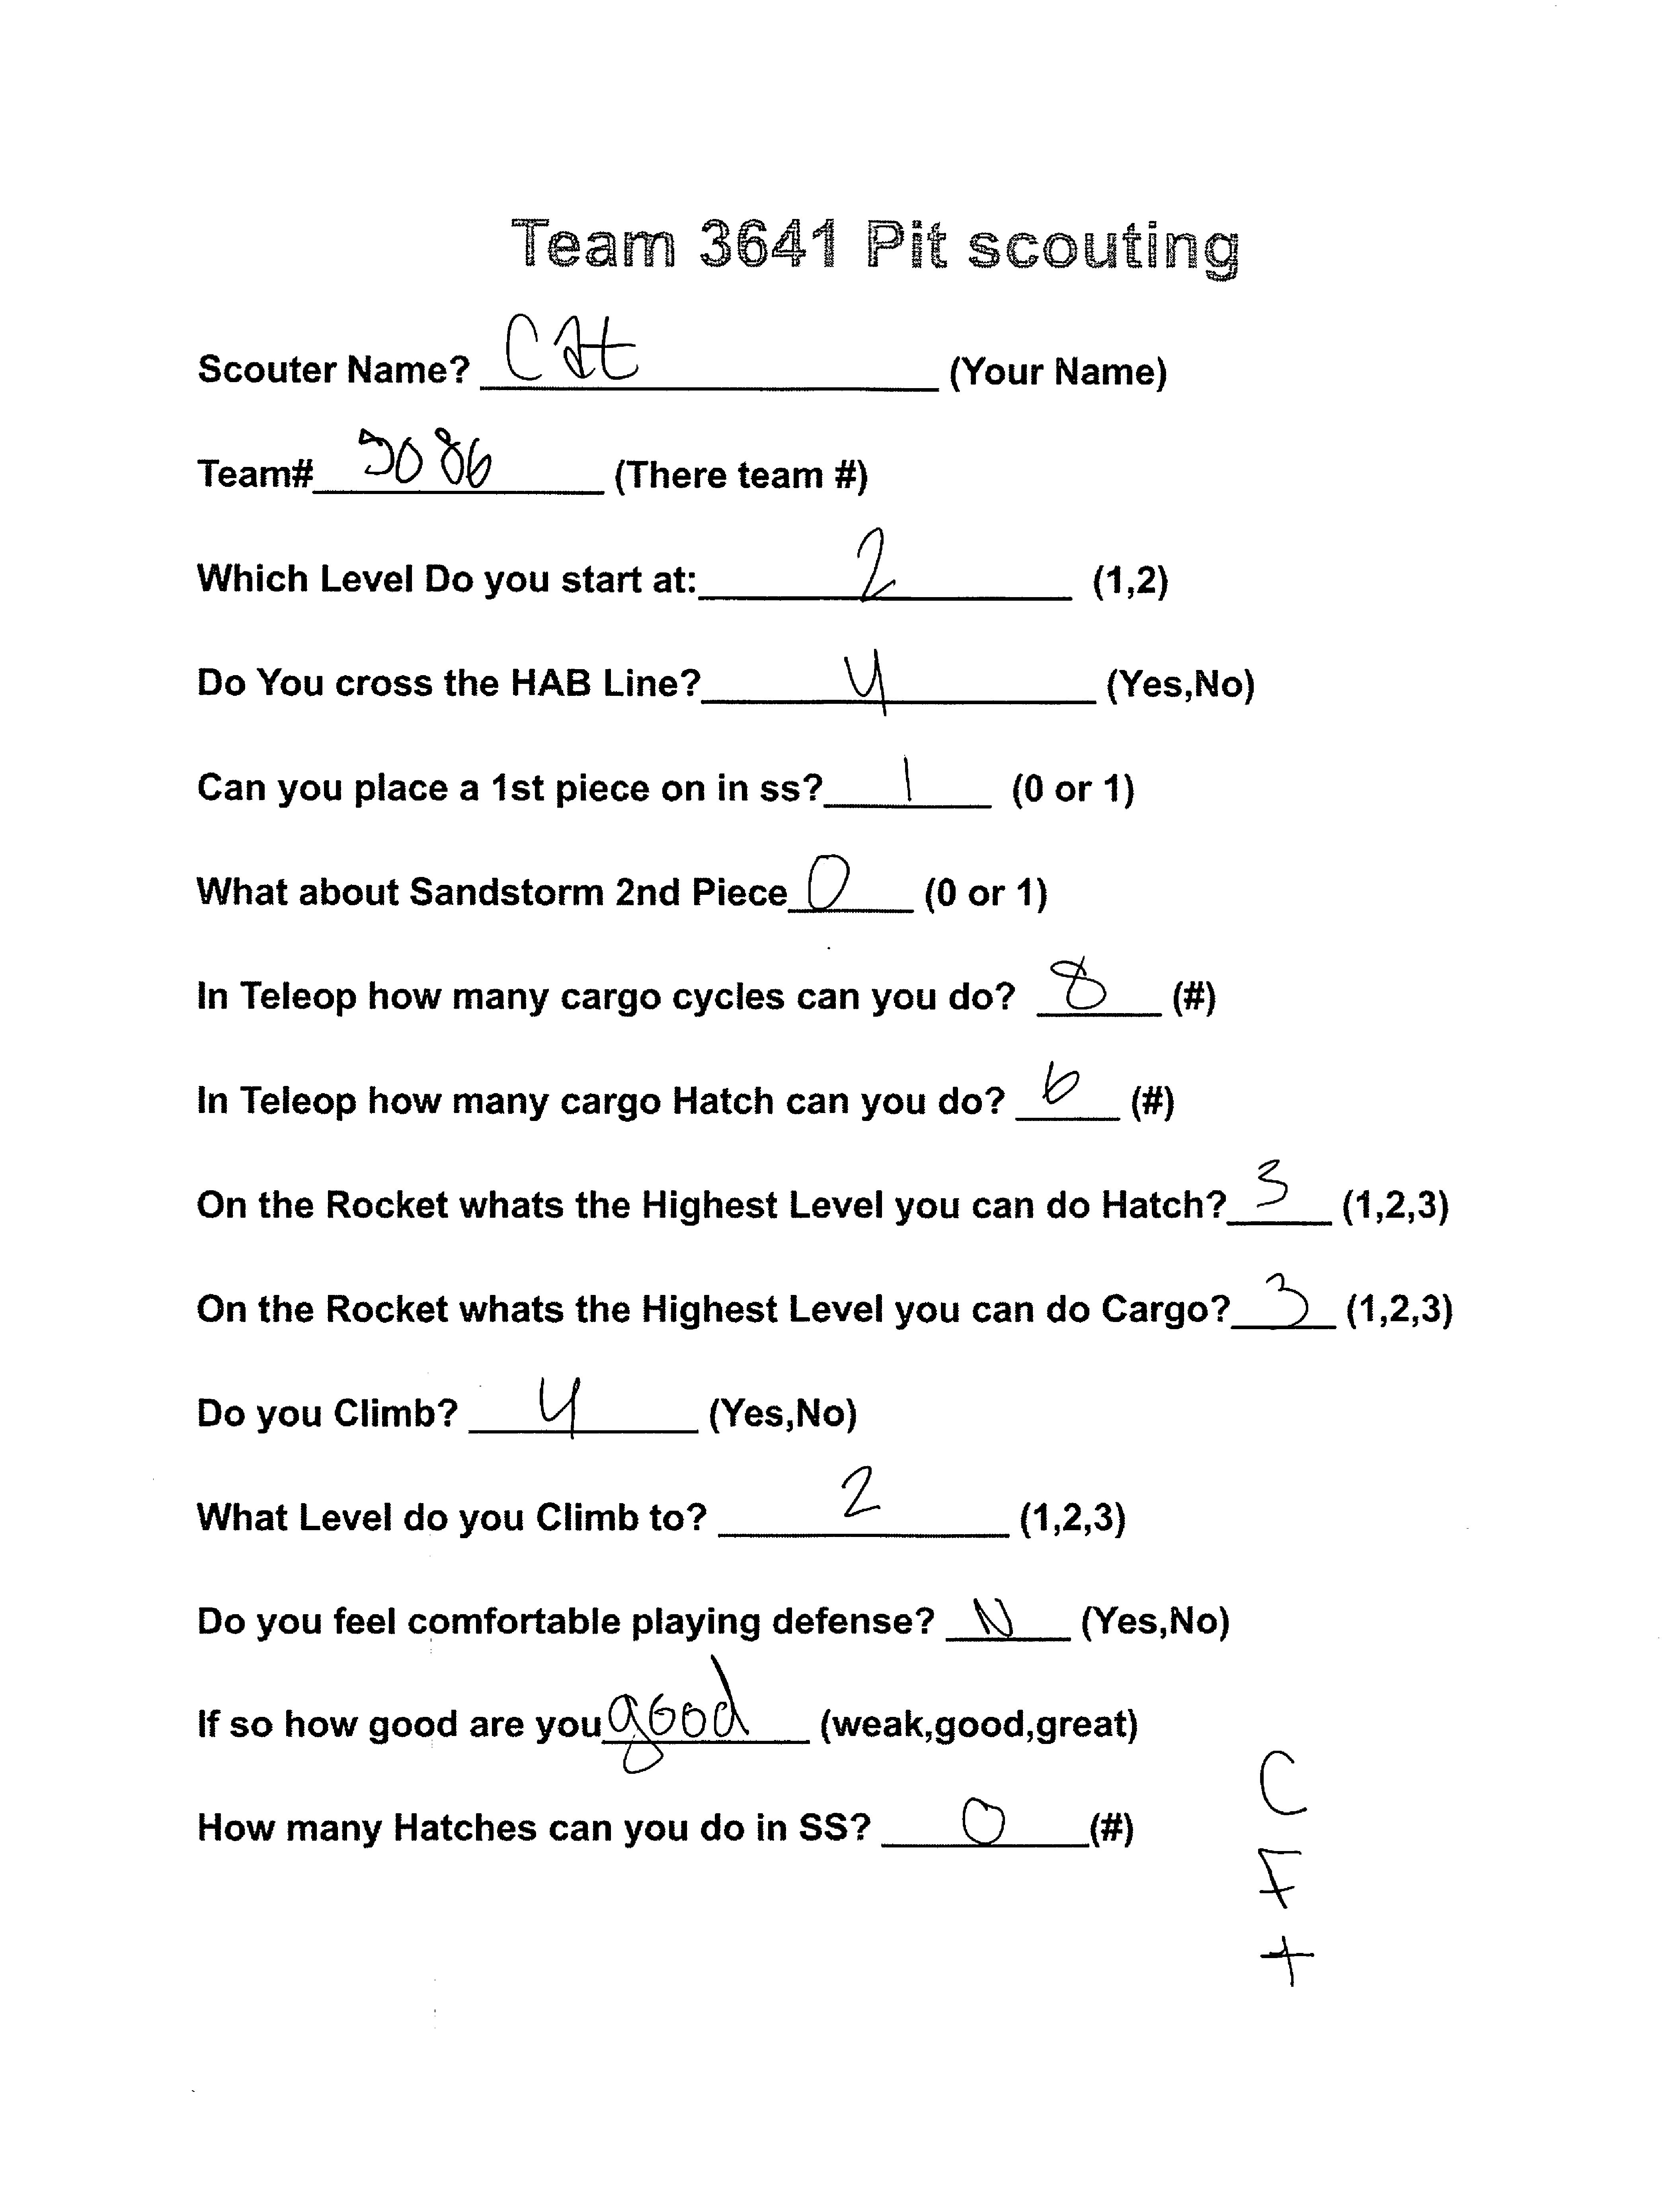 Team 3641 Pit scouting
Scouter Name? Cat (Your Name)
Team# 5086 (There team #)
Which Level Do you start at: 2 (1,2)
Do You cross the HAB Line? y (Yes,No)
Can you place a 1st piece on in ss? 1 (0 or 1)
What about Sandstorm 2nd Piece 0 (0 or 1)
In Teleop how many cargo cycles can you do? 8 (#)
In Teleop how many cargo Hatch can you do? 6 (#)
On the Rocket whats the Highest Level you can do Hatch? 3 (1,2,3)
On the Rocket whats the Highest Level you can do Cargo? 3 (1,2,3)
Do you Climb? y (Yes,No)
What Level do you Climb to? 2 (1,2,3)
Do you feel comfortable playing defense? N (Yes,No)
If so how good are you good (weak,good,great)
How many Hatches can you do in SS? 0 (#)
C
F
+